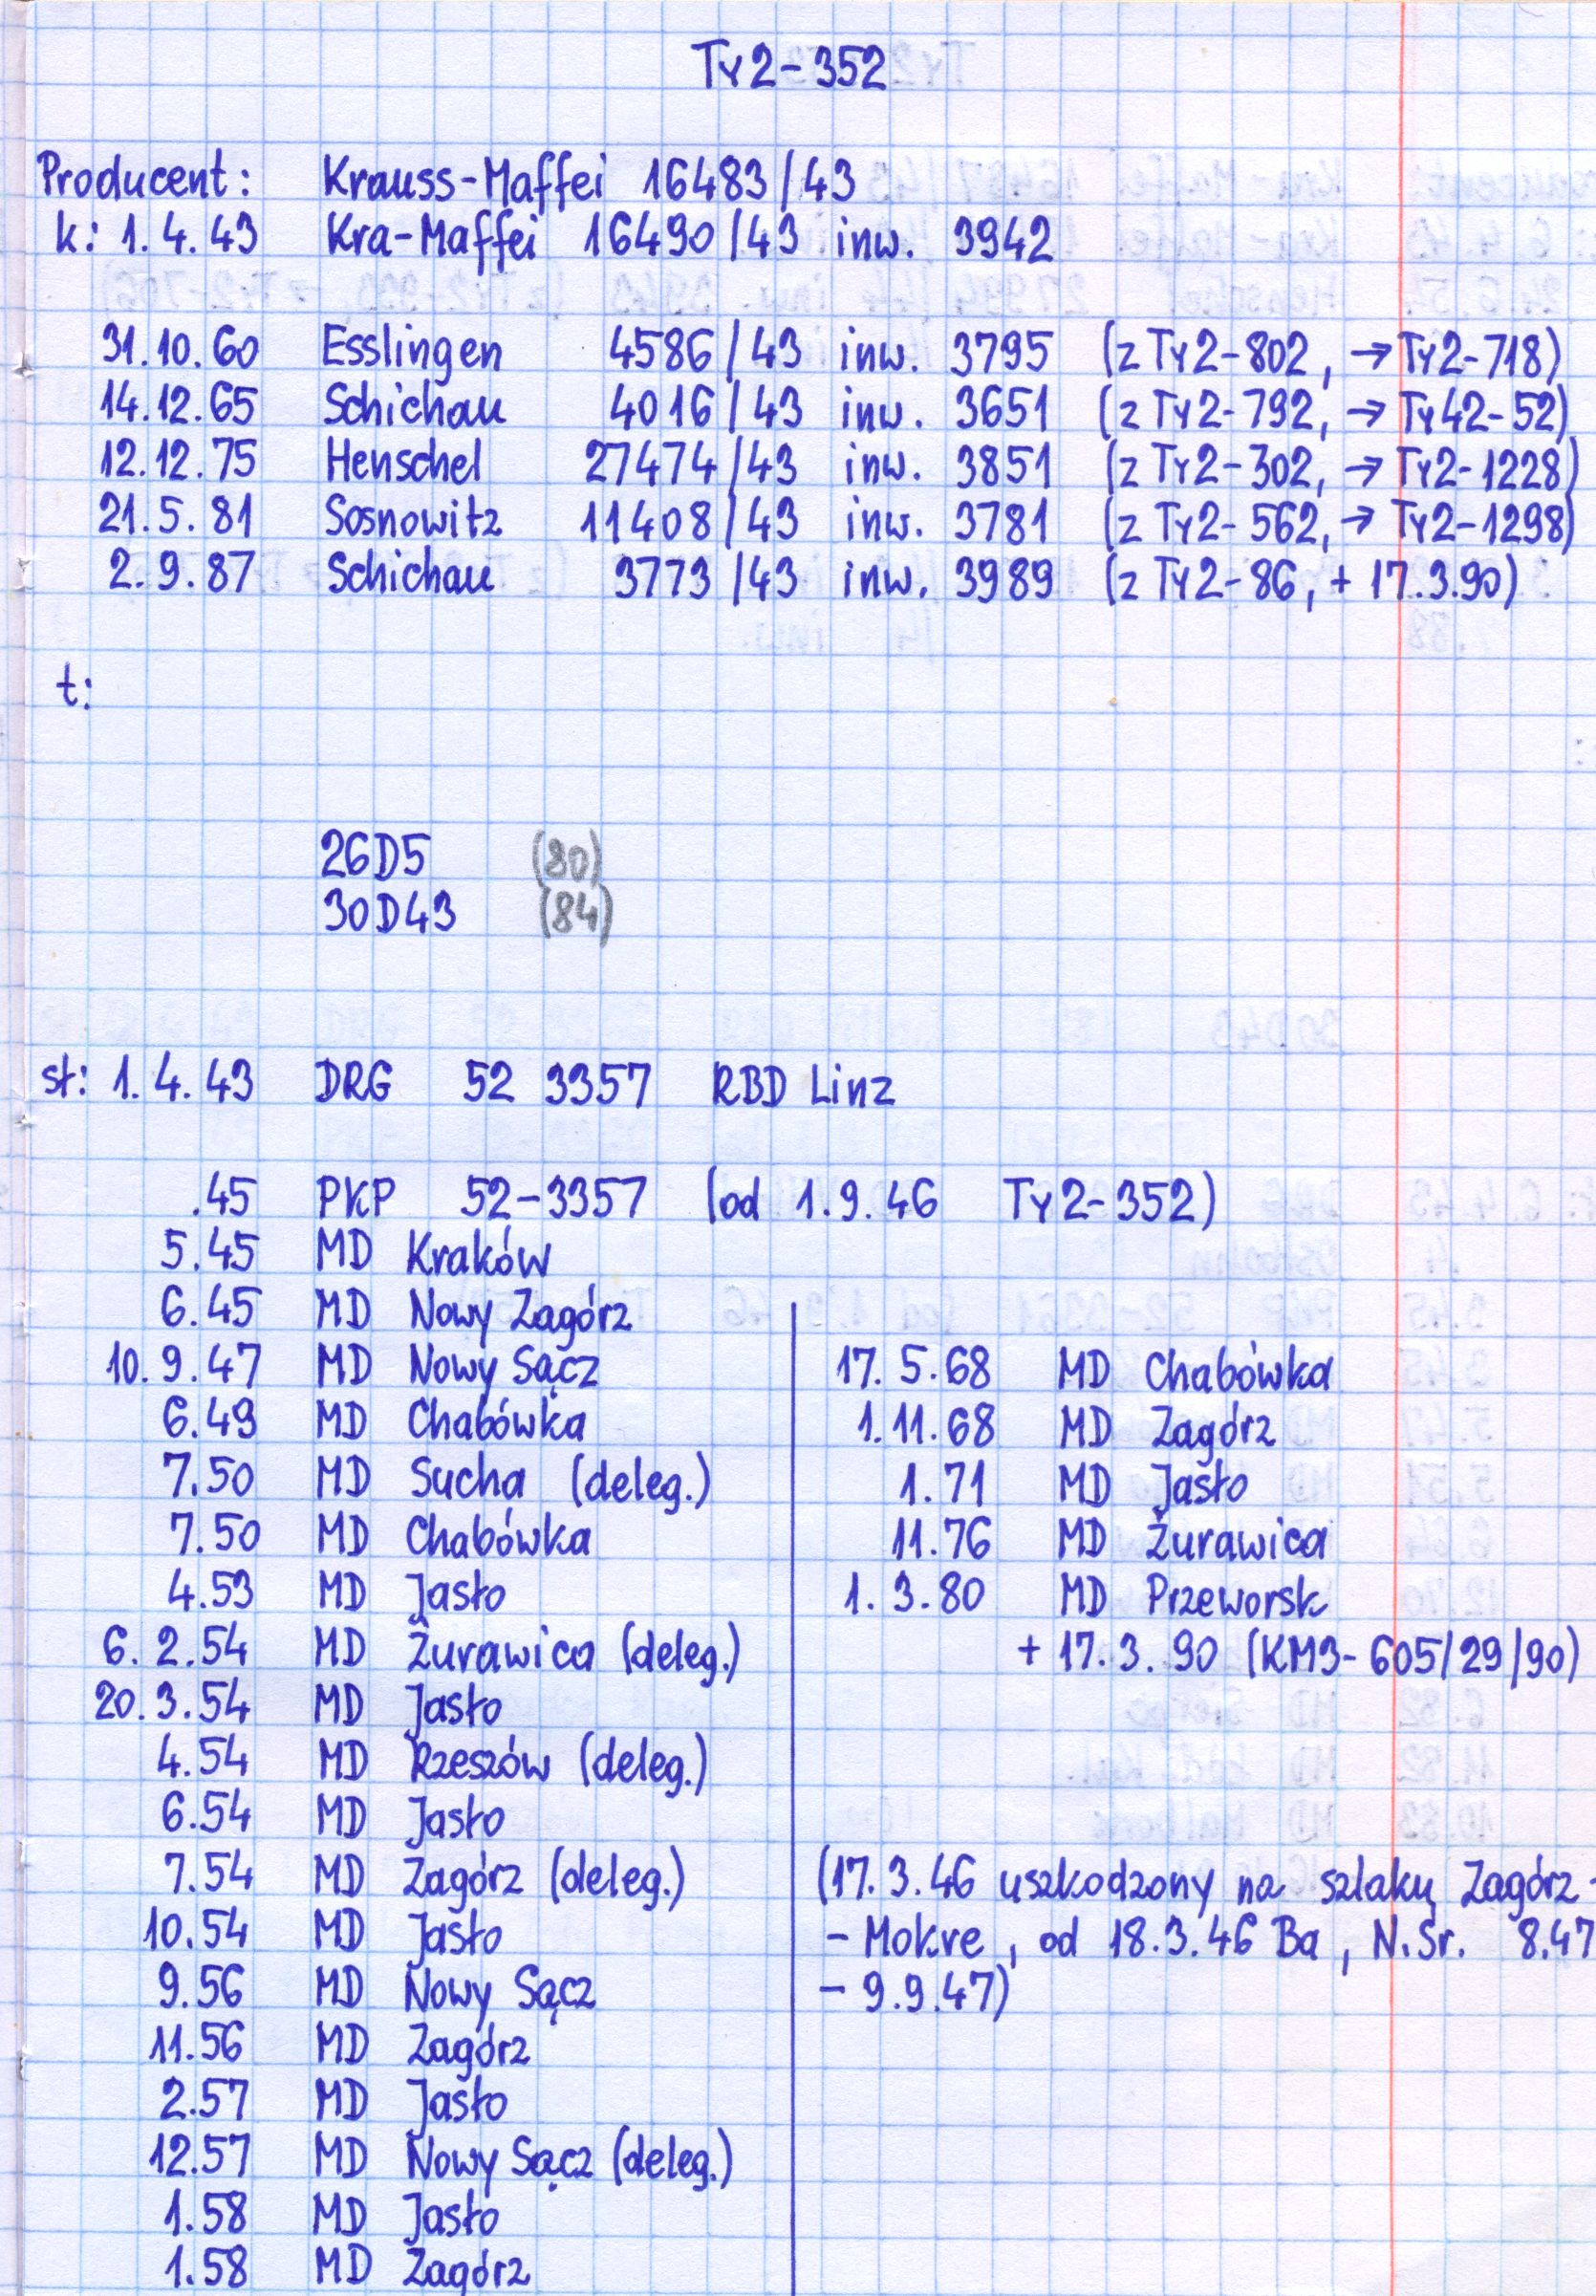 Ty2-352
Producent: Krauss-Maffei 16483/43
k: 1.4.43 Kra-Maffei 16490/43 inw. 3942
31.10.60 Esslingen 4586/43 inw. 3795 (z Ty2-802, → Ty2-718)
14.12.65 Schichau 4016/43 inw. 3651 (z Ty2-792, → Ty42-52)
12.12.75 Henschel 27474/43 inw. 3851 (z Ty2-302, → Ty2-1228)
21.5.81 Sosnowitz 11408/43 inw. 3781 (z Ty2-562, → Ty2-1298)
2.9.87 Schichau 3773/43 inw. 3989 (z Ty2-86, + 17.3.90)
t:
26D5 (80)
30D43 (84)
st: 1.4.43 DRG 52 3357 RBD Linz
.45 PKP 52-3357 (od 1.9.46 Ty2-352)
5.45 MD Kraków
6.45 MD Nowy Zagórz
10.9.47 MD Nowy Sącz
6.49 MD Chabówka
7.50 MD Sucha (deleg.)
7.50 MD Chabówka
4.53 MD Jasło
6.2.54 MD Żurawica (deleg.)
20.3.54 MD Jasło
4.54 MD Rzeszów (deleg.)
6.54 MD Jasło
7.54 MD Zagórz (deleg.)
10.54 MD Jasło
9.56 MD Nowy Sącz
11.56 MD Zagórz
2.57 MD Jasło
12.57 MD Nowy Sącz (deleg.)
1.58 MD Jasło
1.58 MD Zagórz
17.5.68 MD Chabówka
1.11.68 MD Zagórz
1.71 MD Jasło
11.76 MD Żurawica
1.3.80 MD Przeworsk
+ 17.3.90 (KM3-605/29/90)
(17.3.46 uszkodzony na szlaku Zagórz-
- Mokre, od 18.3.46 Ba, N.Sr. 8.47
- 9.9.47)